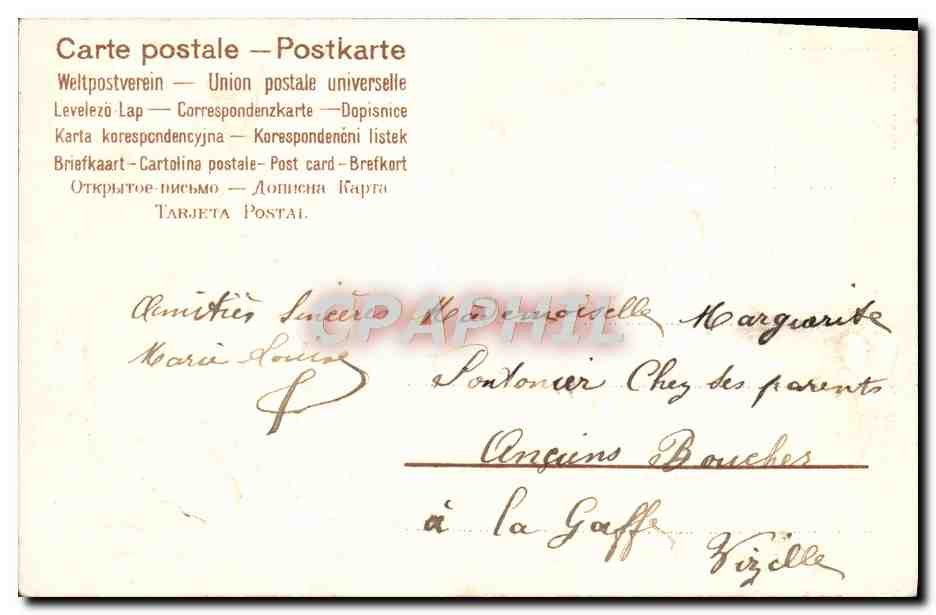 Carte postale — Postkarte
Weltpostverein — Union postale universelle
Levelező-Lap — Correspondenzkarte — Dopisnice
Karta korespondencyjna — Korespondenčni listek
Briefkaart - Cartolina postale - Post card - Brefkort
Открытое письмо — Дописна Карта
TARJETA POSTAL
Amitiés Sincères
Marie Louise
CPAPHIL
Mademoiselle Marguerite
Pontonier Chez ses parents
Anciens Boucher
à la Gaffe
Vizille